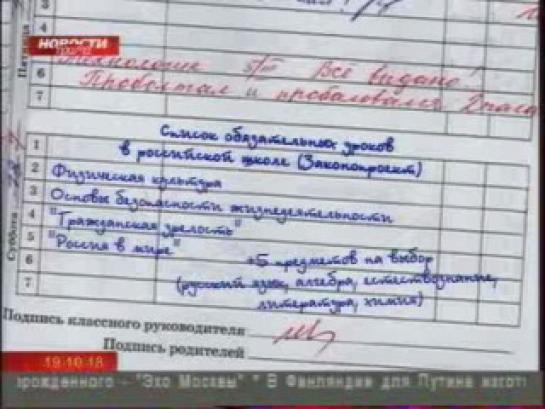 5
6
7
НОВОСТИ
Пятница
Технология 5/II Всё видано!
Проболтал и пробаловался 2 часа
Суббота
1 Список обязательных уроков
2 в российской школе (Законопроект)
3 Физическая культура
4 Основы безопасности жизнедеятельности
5 "Гражданская зрелость"
6 "Россия в мире" +5 предметов на выбор
7 (русский язык, алгебра, естествознание,
литература, химия)
Подпись классного руководителя
Подпись родителей
19:10:18
орожденного - "Эхо Москвы" * В Финляндии для Путина изгот